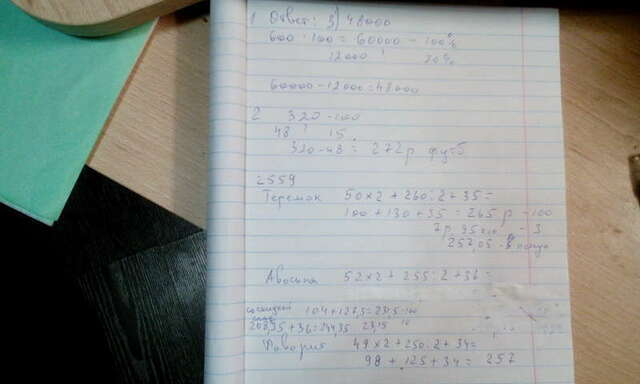 1 Ответ: 3) 48000
600 · 100 = 60000 - 100%
12000 20%
60000 - 12000 = 48000
2 320 - 100
48 15
320 - 48 = 272 р футб
2559
Теремок 50×2 + 260:2 + 35 =
100 + 130 + 35 = 265 р - 100
- 3
257,05 -
52×2 + 255:2 + 36 =
104 + 127,5 = 231,5 100
208,35 + 36 = 244,35 23,15 10
Фаворит 49×2 + 250:2 + 34 =
98 + 125 + 34 = 257